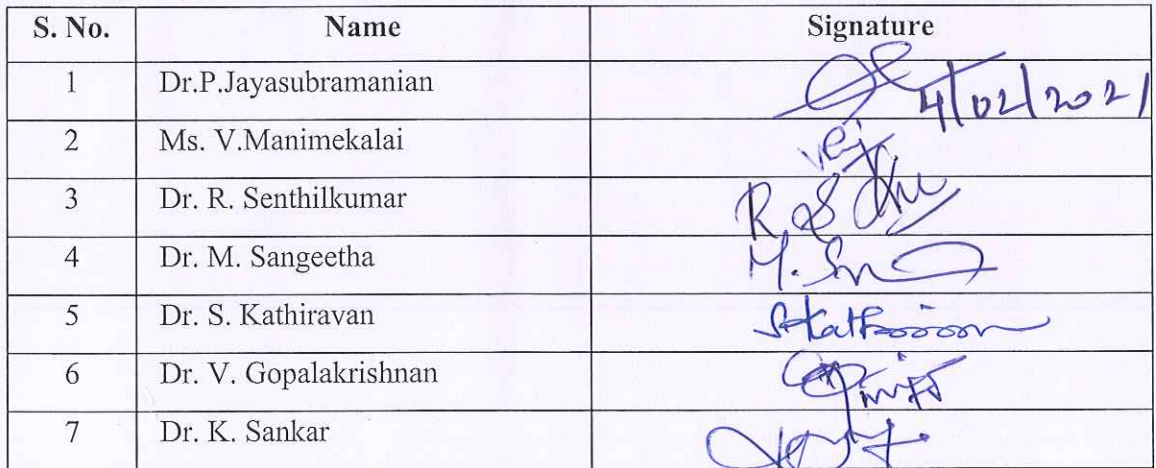 S. No. Name Signature
1 Dr.P.Jayasubramanian 4/02/2021
2 Ms. V.Manimekalai
3 Dr. R. Senthilkumar
4 Dr. M. Sangeetha
5 Dr. S. Kathiravan
6 Dr. V. Gopalakrishnan
7 Dr. K. Sankar